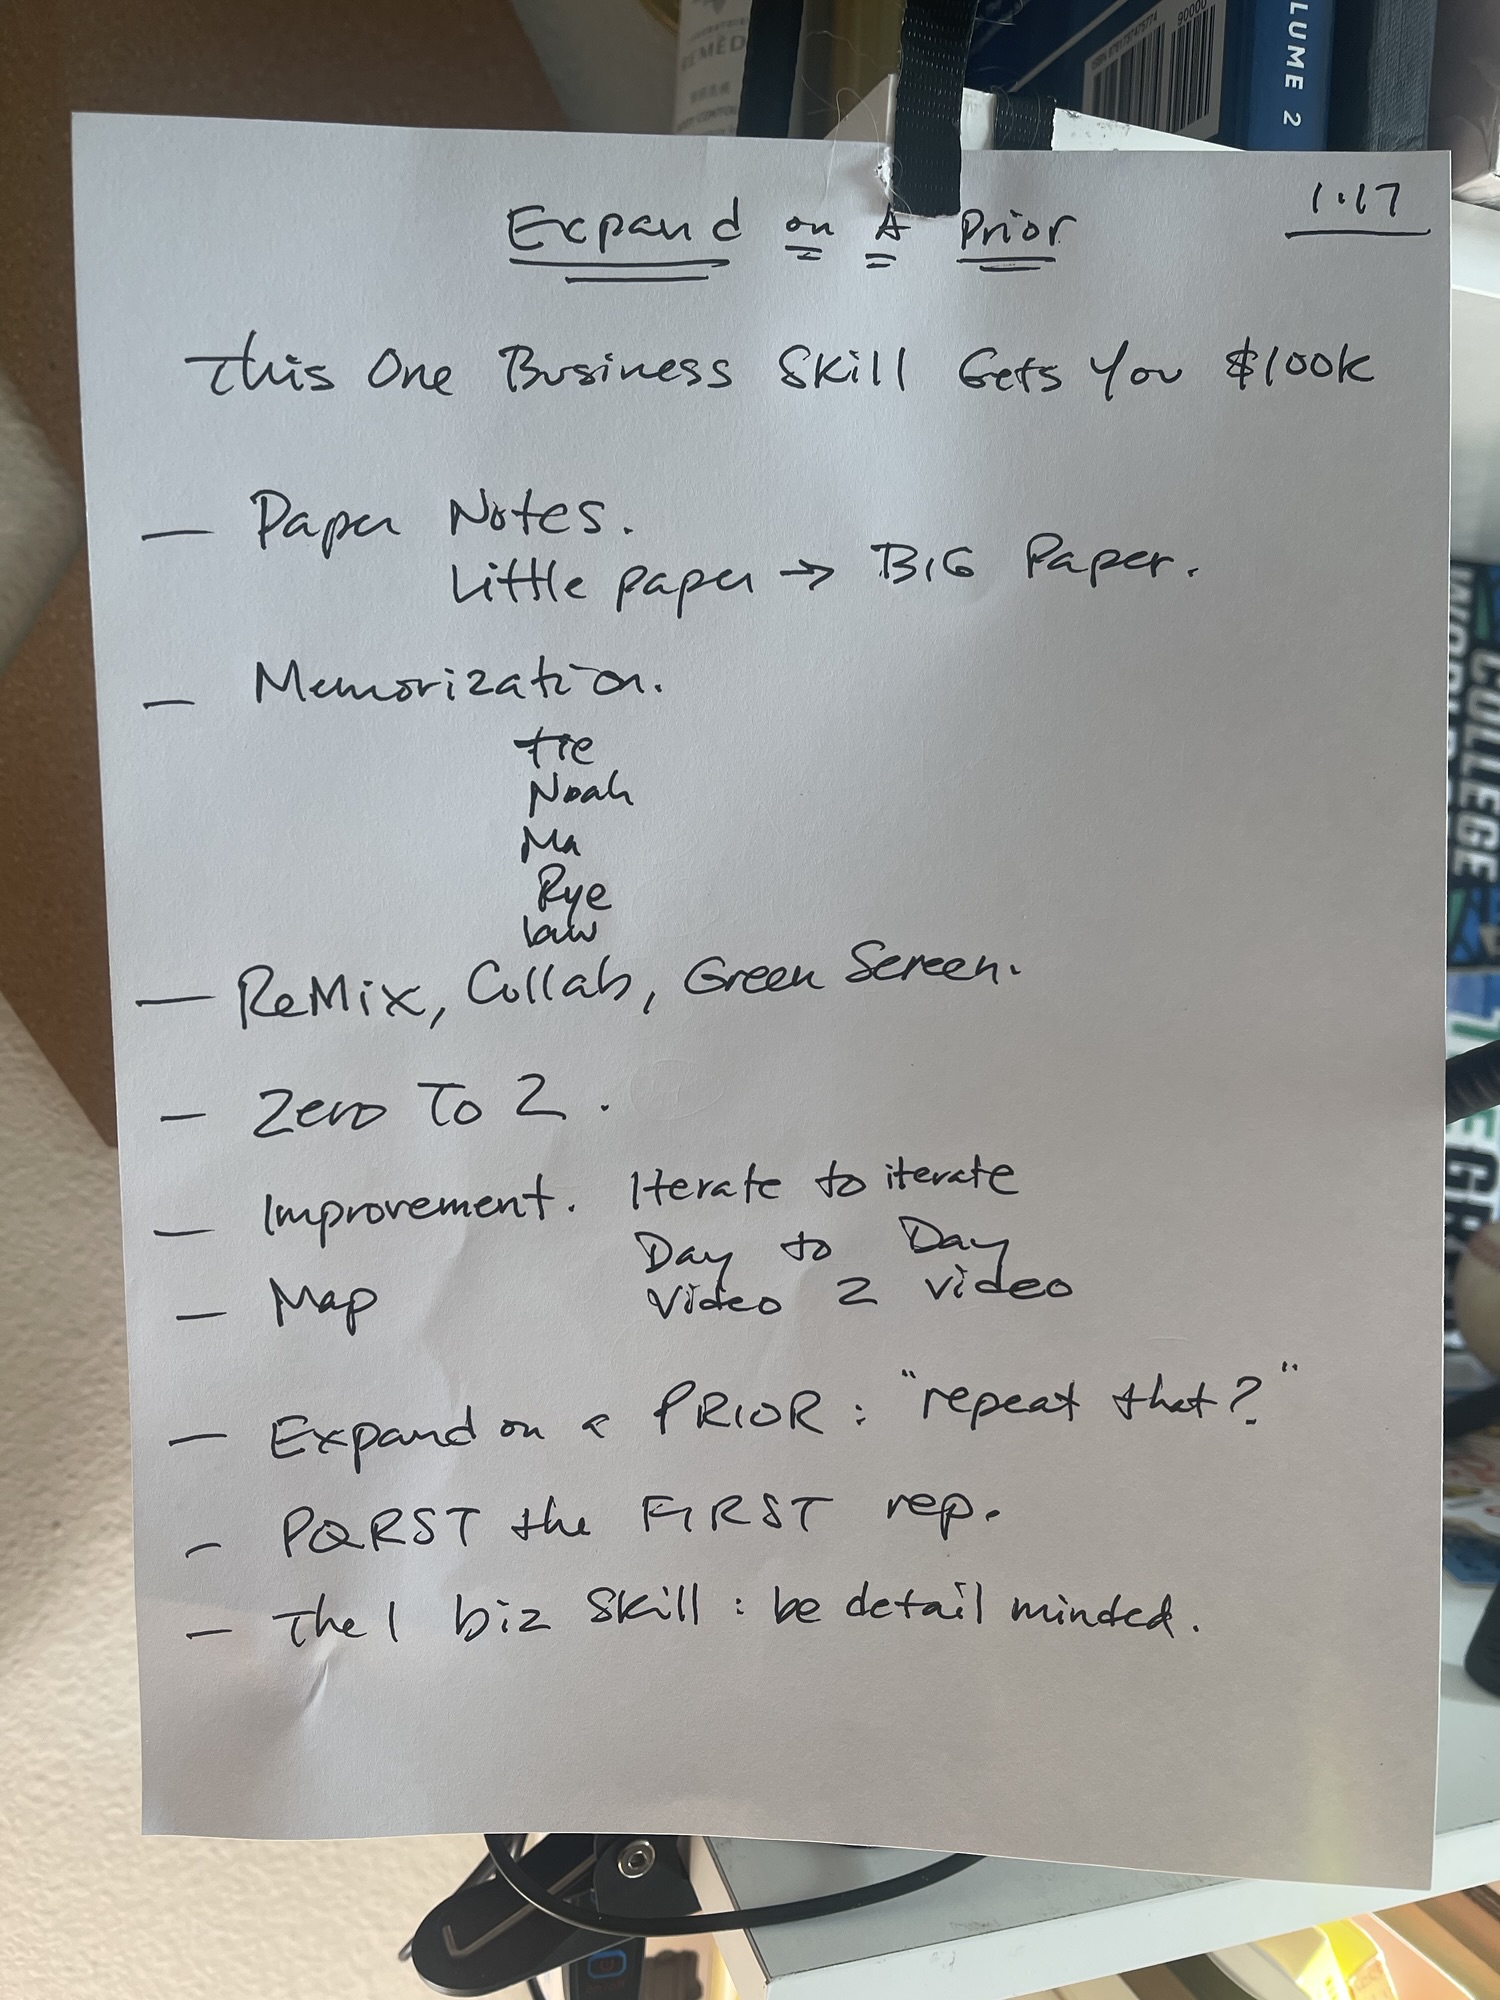 1.17
Expand on A Prior
This One Business Skill Gets You $100k
— Paper Notes.
Little paper → BIG Paper.
— Memorization.
tie
Noah
Ma
Rye
law
— ReMix, Collab, Green Screen.
— Zero To 2.
— Improvement. Iterate to iterate
Day to Day
— Map
Video 2 video
— Expand on a PRIOR: "repeat that?"
— PQRST the FIRST rep.
— The 1 biz skill: be detail minded.
LUME 2
90000
COLLEGE